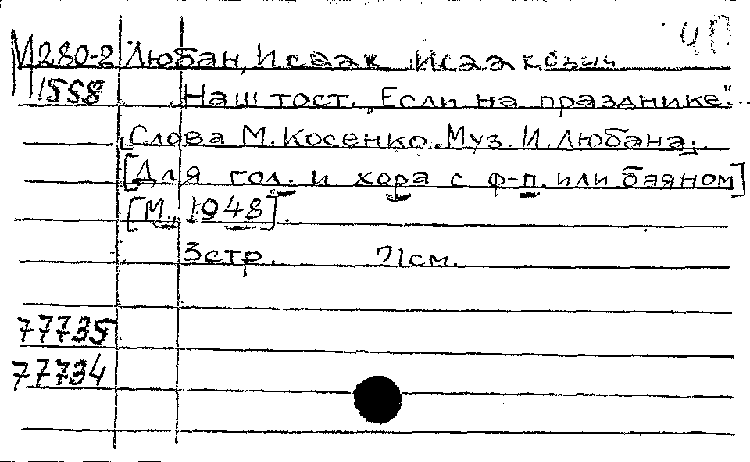 ЧП
М280-2 Любан, Исаак Исаакович
1558 Наш тост. "Если на празднике"...
Слова М. Косенко. Муз. И. Любана.
[Для гол. и хора с ф-п. или баяном]
[М., 1948].
3стр. 21см.
77735
77734